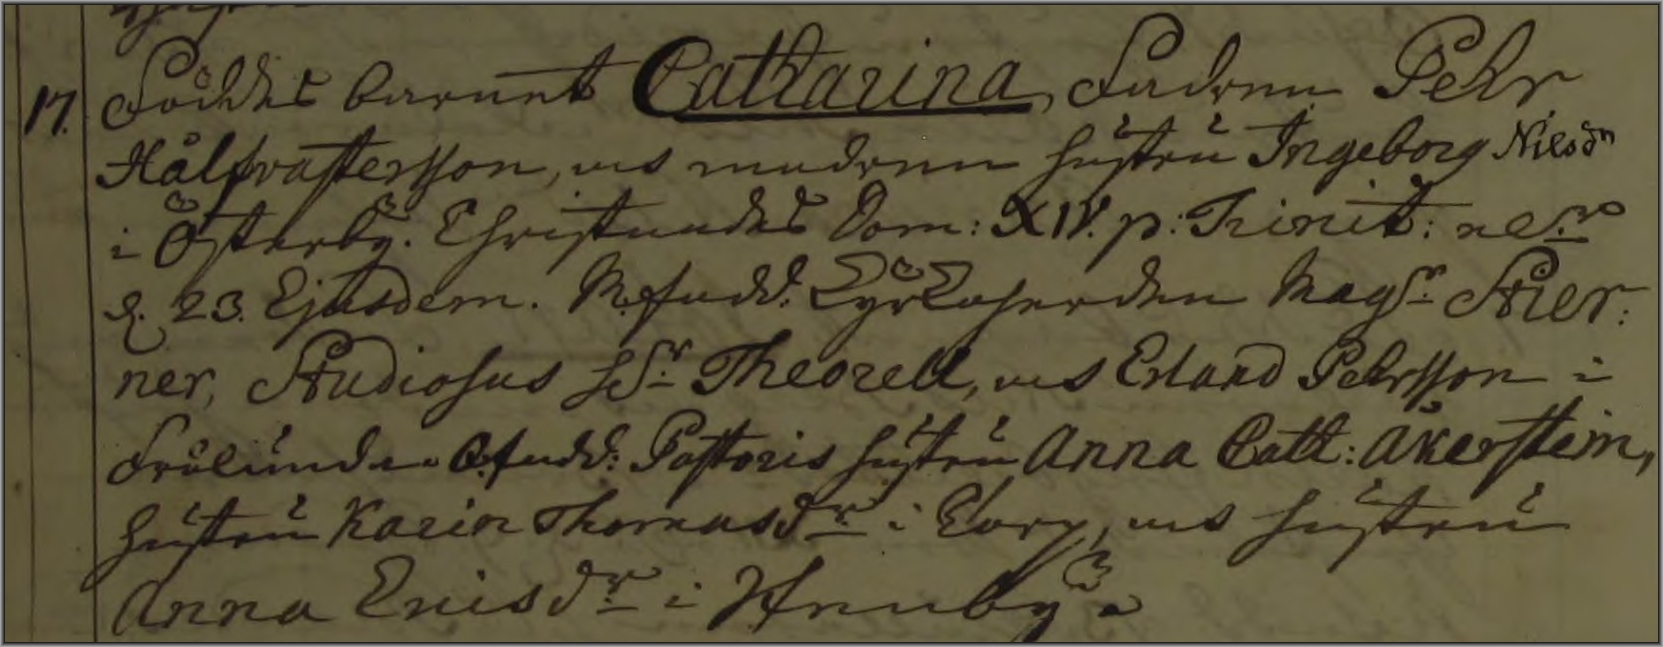 17. Föddes barnet Catharina, Fadren Pehr
Hålfvastersson, och modren hustru Ingeborg Nilsdr
i Österby. Christnades Dom: XIV. p: Trinit:
d. 23. Ejusdem. M. fadd: Kyrkoherden Mag.r Stier:
ner, Studiosus Hr Theorell, och Erland Pehrsson i
Frölunda. Q. fadd: Pastoris hustru Anna Cath: Åkerstein,
hustru Karin Thomasdr i, och hustru
Anna Ericsdr i